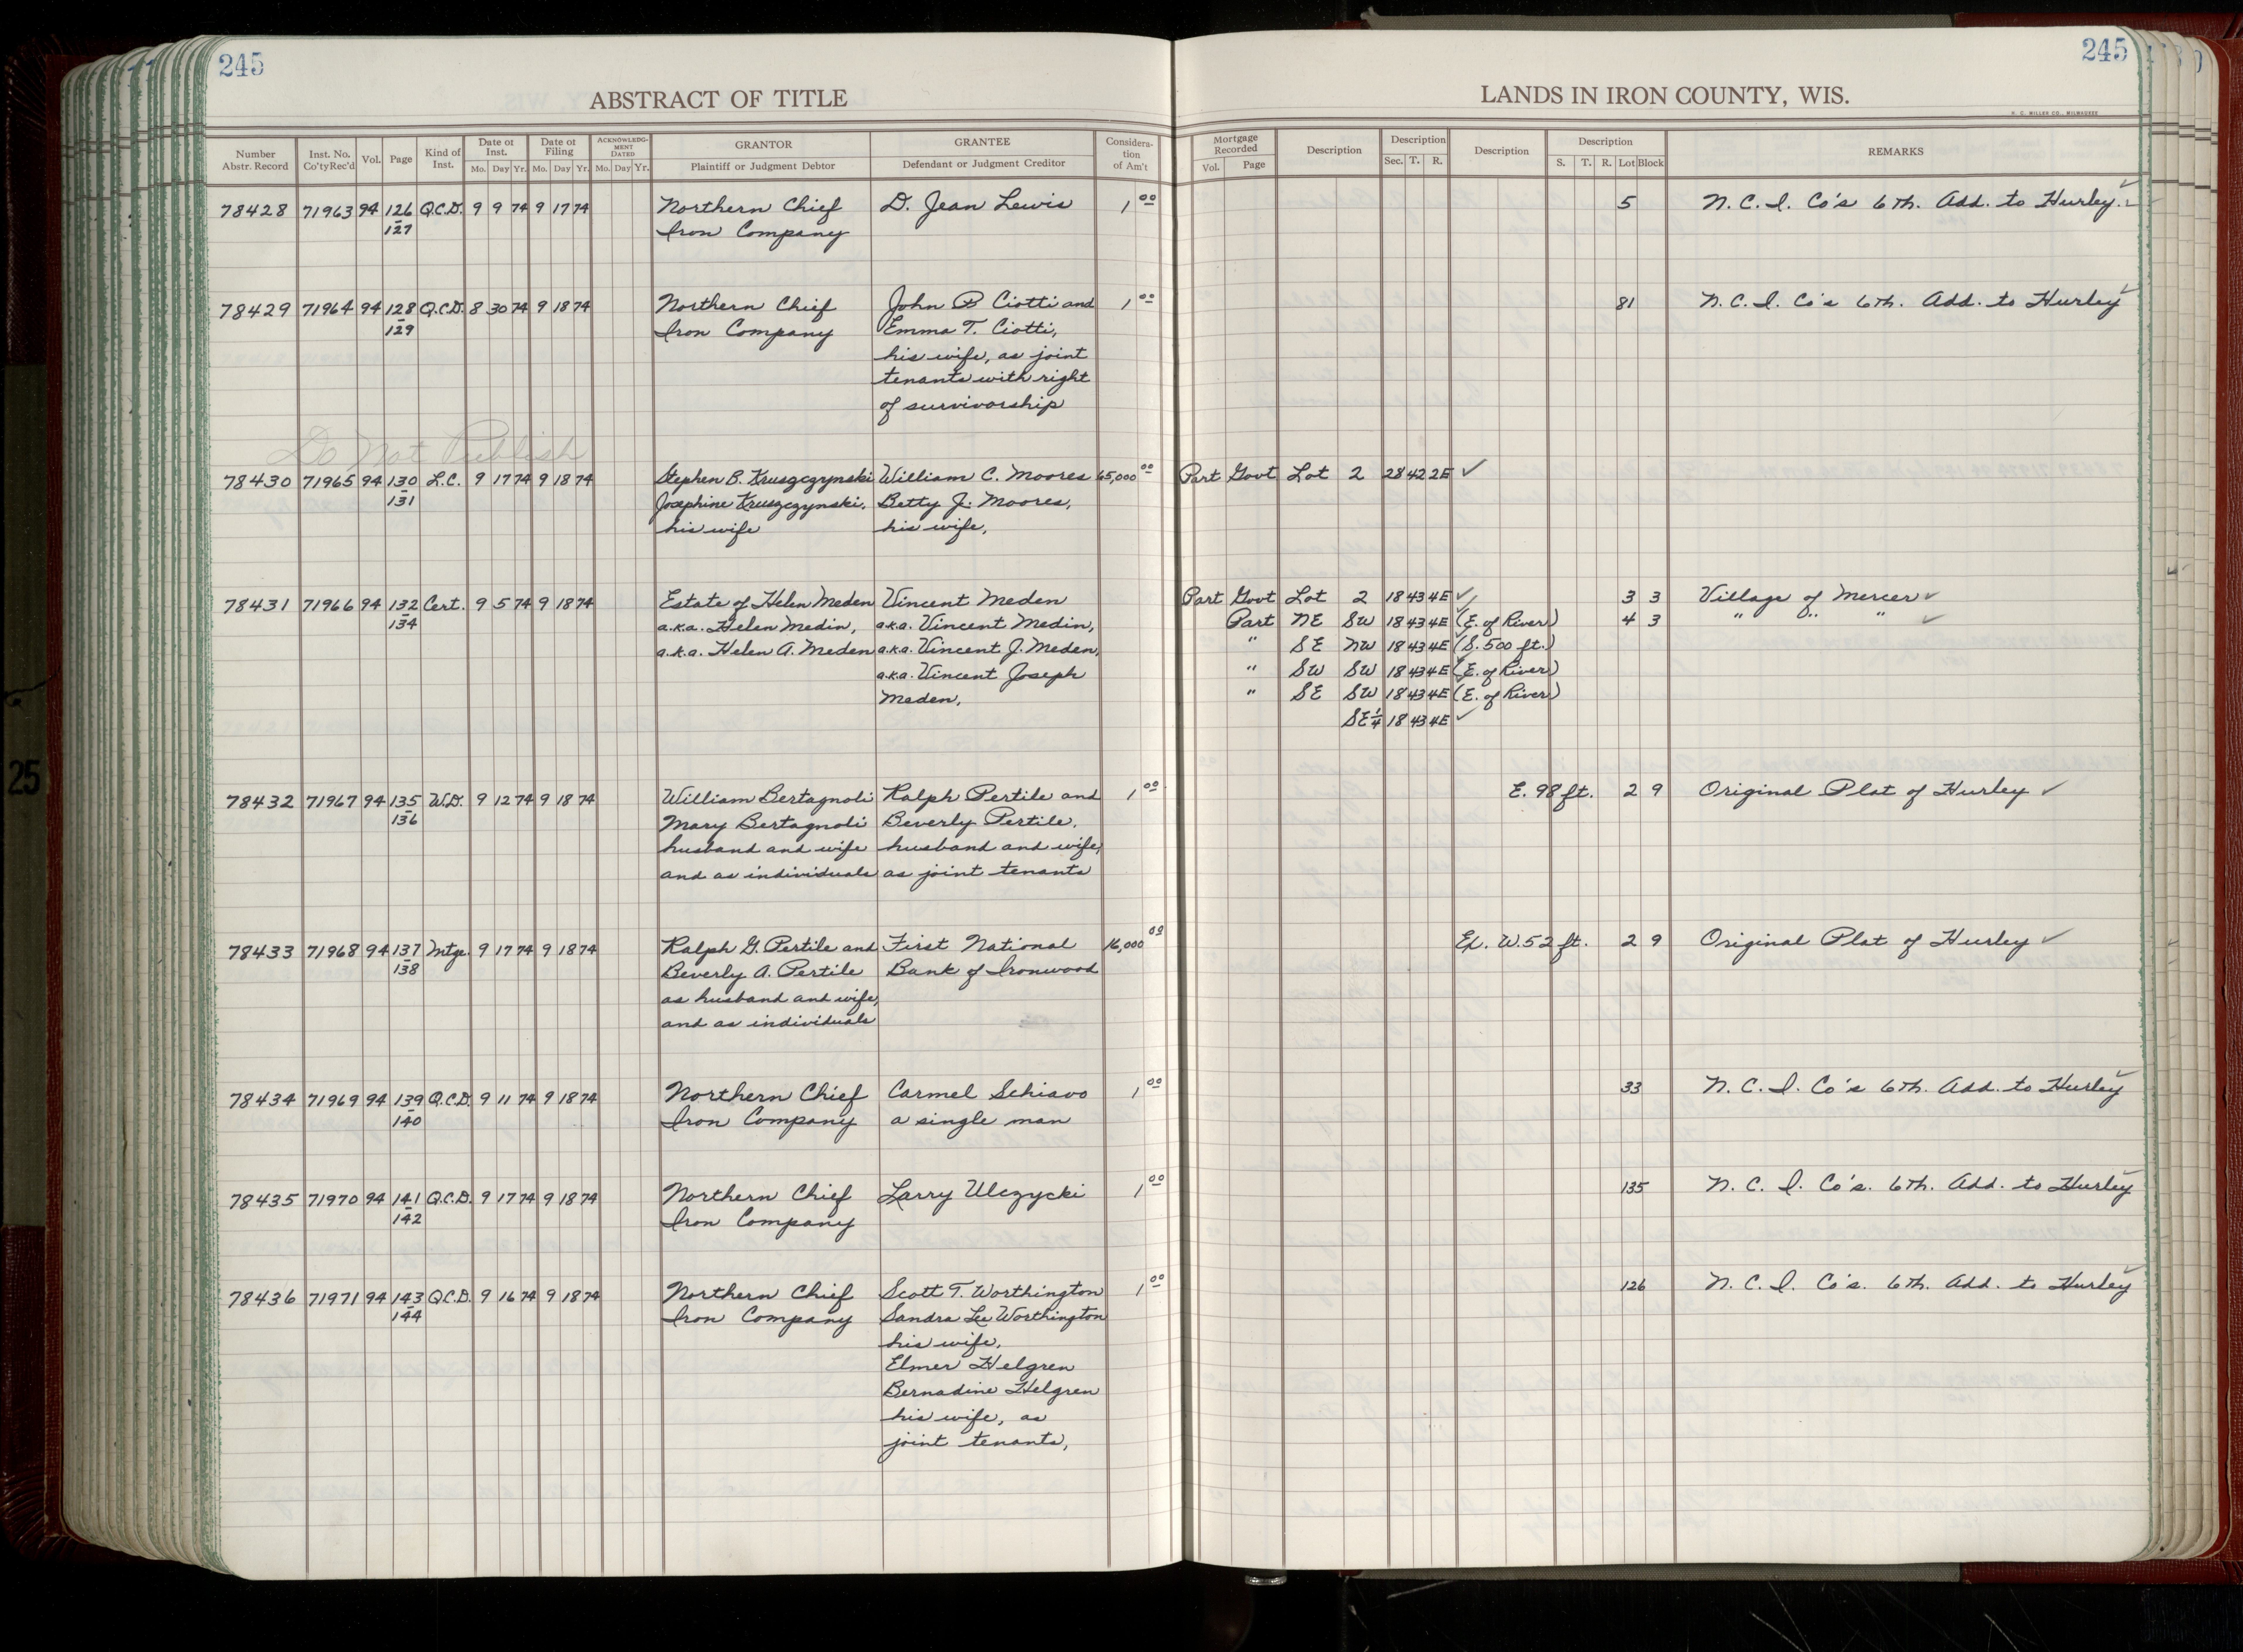 245
245
ABSTRACT OF TITLE
LANDS IN IRON COUNTY, WIS.
H. C. MILLER CO., MILWAUKEE
Number Abstr. Record Inst. No. Co'tyRec'd Vol. Page Kind of Inst. Date of Inst. Mo. Day Yr. Date of Filing Mo. Day Yr. ACKNOWLEDG-MENT DATED Mo. Day Yr. GRANTOR Plaintiff or Judgment Debtor GRANTEE Defendant or Judgment Creditor Considera-tion of Am't Mortgage Recorded Vol. Page Description Description Sec. T. R. Description Description S. T. R. Lot Block REMARKS
78428 71963 94 126 Q.C.D. 9 9 74 9 17 74 Northern Chief D. Jean Lewis 1 00 5 N. C. I. Co's 6th. Add. to Hurley. ✓
127 Iron Company
78429 71964 94 128 Q.C.D. 8 30 74 9 18 74 Northern Chief John B Ciotti and 1 00 81 N. C. I. Co's 6th. Add. to Hurley ✓
129 Iron Company Emma T. Ciotti,
his wife, as joint
tenants with right
of survivorship
Do Not Publish
78430 71965 94 130 L.C. 9 17 74 9 18 74 Stephen B. Kruszczynski William C. Moores 65,000 00 Part Govt Lot 2 28 42 2E ✓
131 Josephine Kruszczynski, Betty J. Moores,
his wife his wife,
78431 71966 94 132 Cert. 9 5 74 9 18 74 Estate of Helen Meden Vincent Meden Part Govt Lot 2 18 43 4E ✓ 3 3 Village of Mercer ✓
134 a.k.a. Helen Medin, a.k.a. Vincent Medin, Part NE SW 18 43 4E (E. of River) 4 3 " " " ✓
a.k.a. Helen A. Meden a.k.a. Vincent J. Meden, " SE NW 18 43 4E (S. 500 ft.)
a.k.a. Vincent Joseph " SW SW 18 43 4E (E. of River)
Meden, " SE SW 18 43 4E (E. of River)
SE 1/4 18 43 4E ✓
78432 71967 94 135 W.D. 9 12 74 9 18 74 William Bertagnoli Ralph Pertile and 1 00 E. 98 ft. 2 9 Original Plat of Hurley ✓
136 Mary Bertagnoli Beverly Pertile,
husband and wife husband and wife,
and as individuals as joint tenants
78433 71968 94 137 Mtge. 9 17 74 9 18 74 Ralph G. Pertile and First National 16,000 00 Ex. W. 52 ft. 2 9 Original Plat of Hurley ✓
138 Beverly A. Pertile Bank of Ironwood
as husband and wife,
and as individuals
78434 71969 94 139 Q.C.D. 9 11 74 9 18 74 Northern Chief Carmel Schiavo 1 00 33 N. C. I. Co's 6th. Add. to Hurley ✓
140 Iron Company a single man
78435 71970 94 141 Q.C.D. 9 17 74 9 18 74 Northern Chief Larry Ulczycki 1 00 135 N. C. I. Co's. 6th. Add. to Hurley ✓
142 Iron Company
78436 71971 94 143 Q.C.D. 9 16 74 9 18 74 Northern Chief Scott T. Worthington 1 00 126 N. C. I. Co's. 6th. Add. to Hurley ✓
144 Iron Company Sandra Lee Worthington
his wife,
Elmer Helgren
Bernadine Helgren
his wife, as
joint tenants,
25